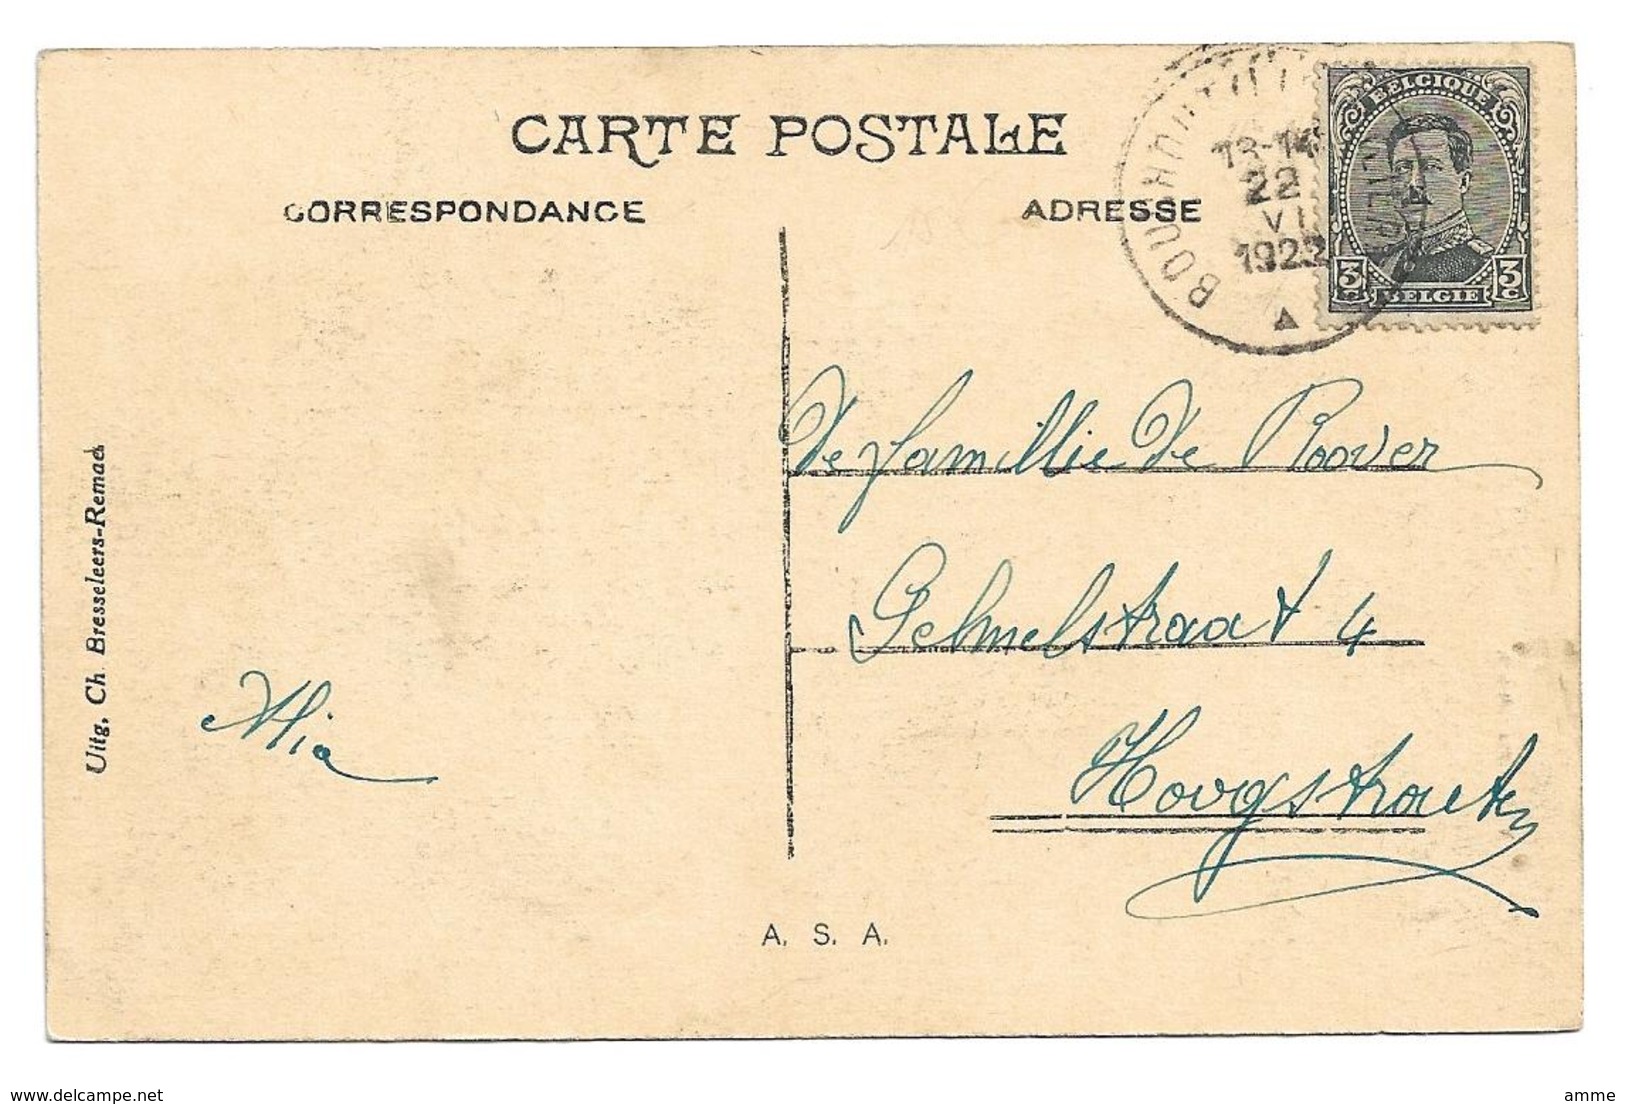 CARTE POSTALE
CORRESPONDANCE
ADRESSE
13-14
22
VI
1922
BELGIQUE
3c 3c
BELGIE
de familie de Roover
Gelmelstraat 4
Hoogstraeten
Mia
Uitg. Ch. Bresseleers-Remael
A. S. A.
www.delcampe.net
amme